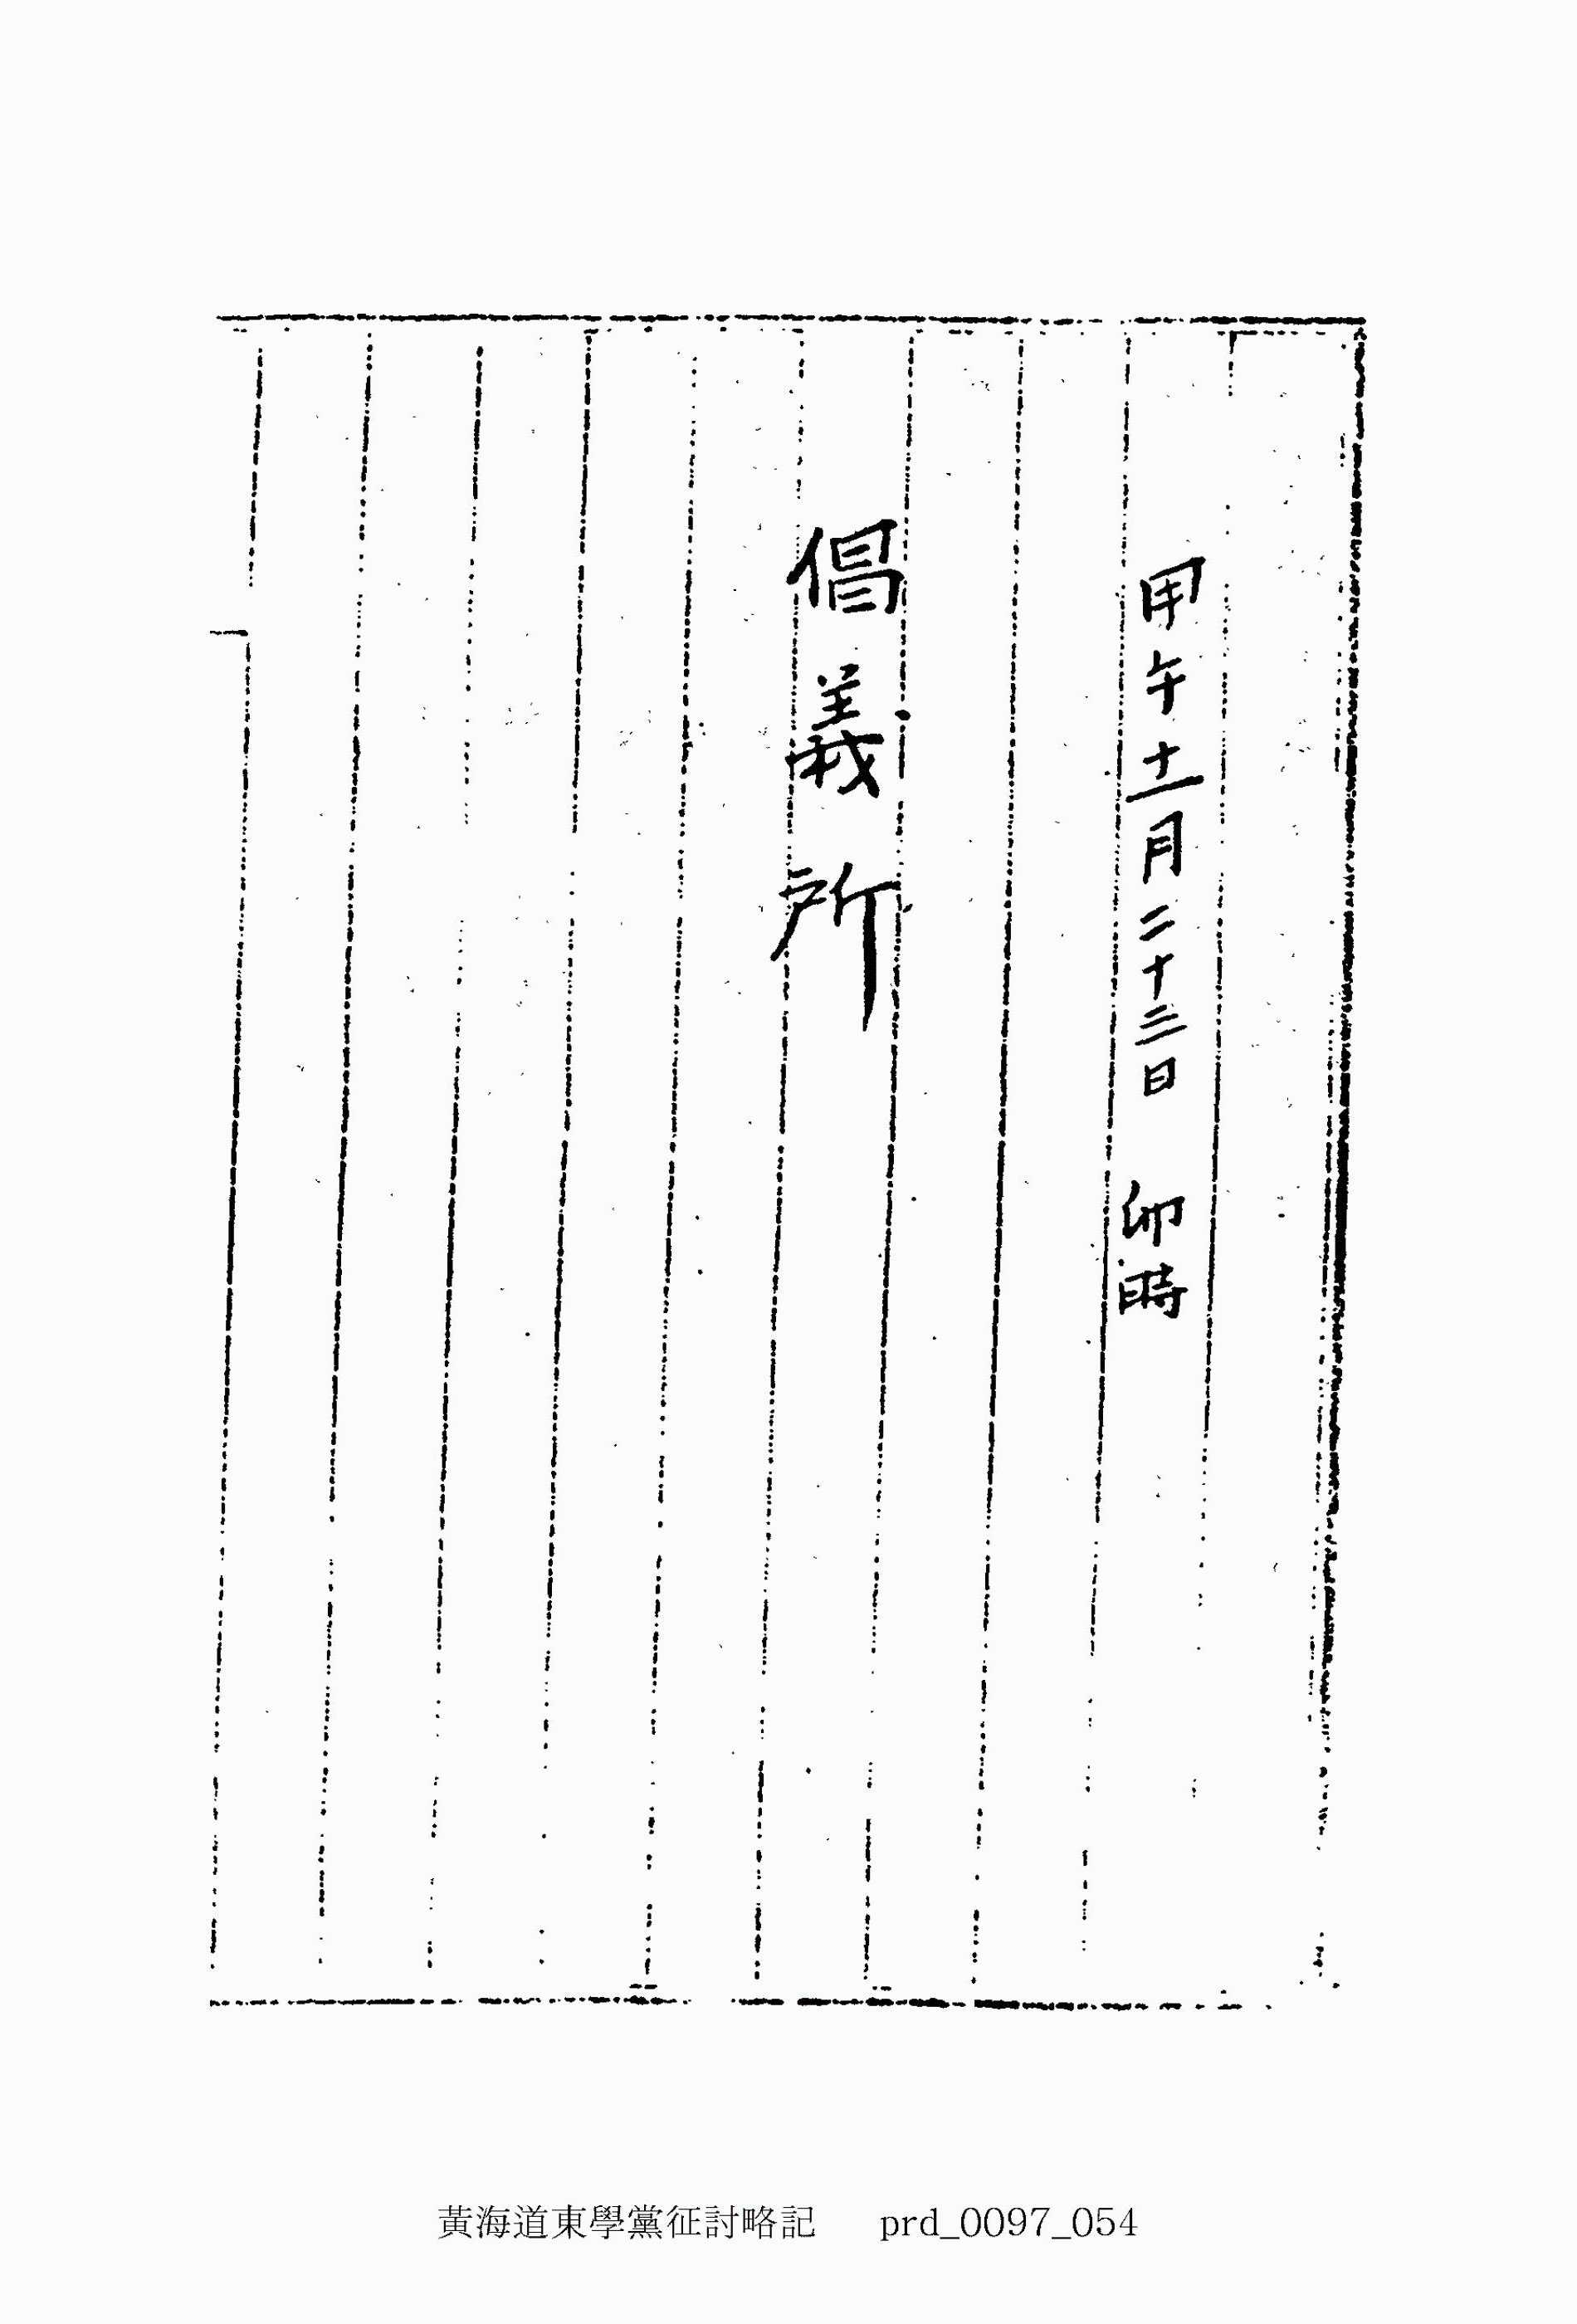 甲午十一月二十三日 卯時
倡義所
黃海道東學黨征討略記 prd_0097_054